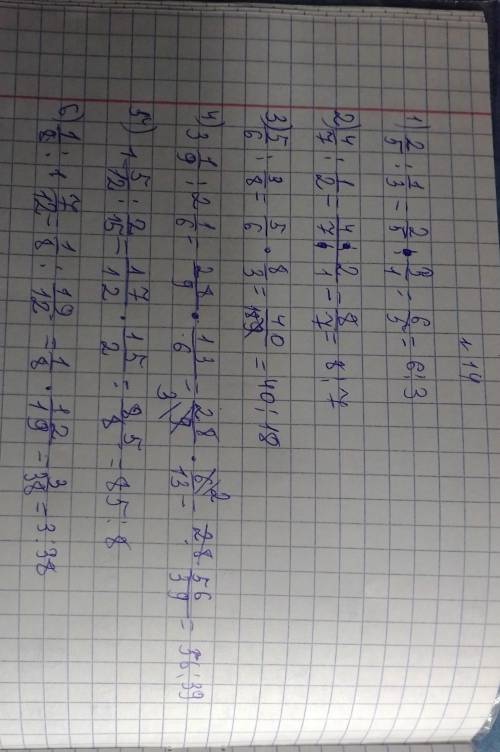 14
1) 2/5 : 1/3 = 2/5 · 3/1 = 6/5 = 6:3
2) 4/7 : 1/2 = 4/7 · 2/1 = 8/7 = 8:7
3) 5/6 : 3/8 = 5/6 · 8/3 = 40/18 = 40:18
4) 3 1/9 : 2 1/6 = 28/9 : 13/6 = 28/9 3 · 6/13 2 = 28 56/39 = 56:39
5) 1 5/12 : 2/15 = 17/12 · 15/2 = 85/8 = 85:8
6) 1/8 : 1 7/12 = 1/8 : 19/12 = 1/8 · 12/19 = 3/38 = 3:38